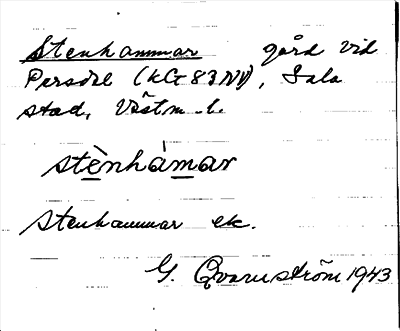 Stenhammar gård vid
Persdal (kG 83 NV), Sala
stad, Västm. l.
stènhámar
Stenhammar ek.
G. Qvarnström 1943